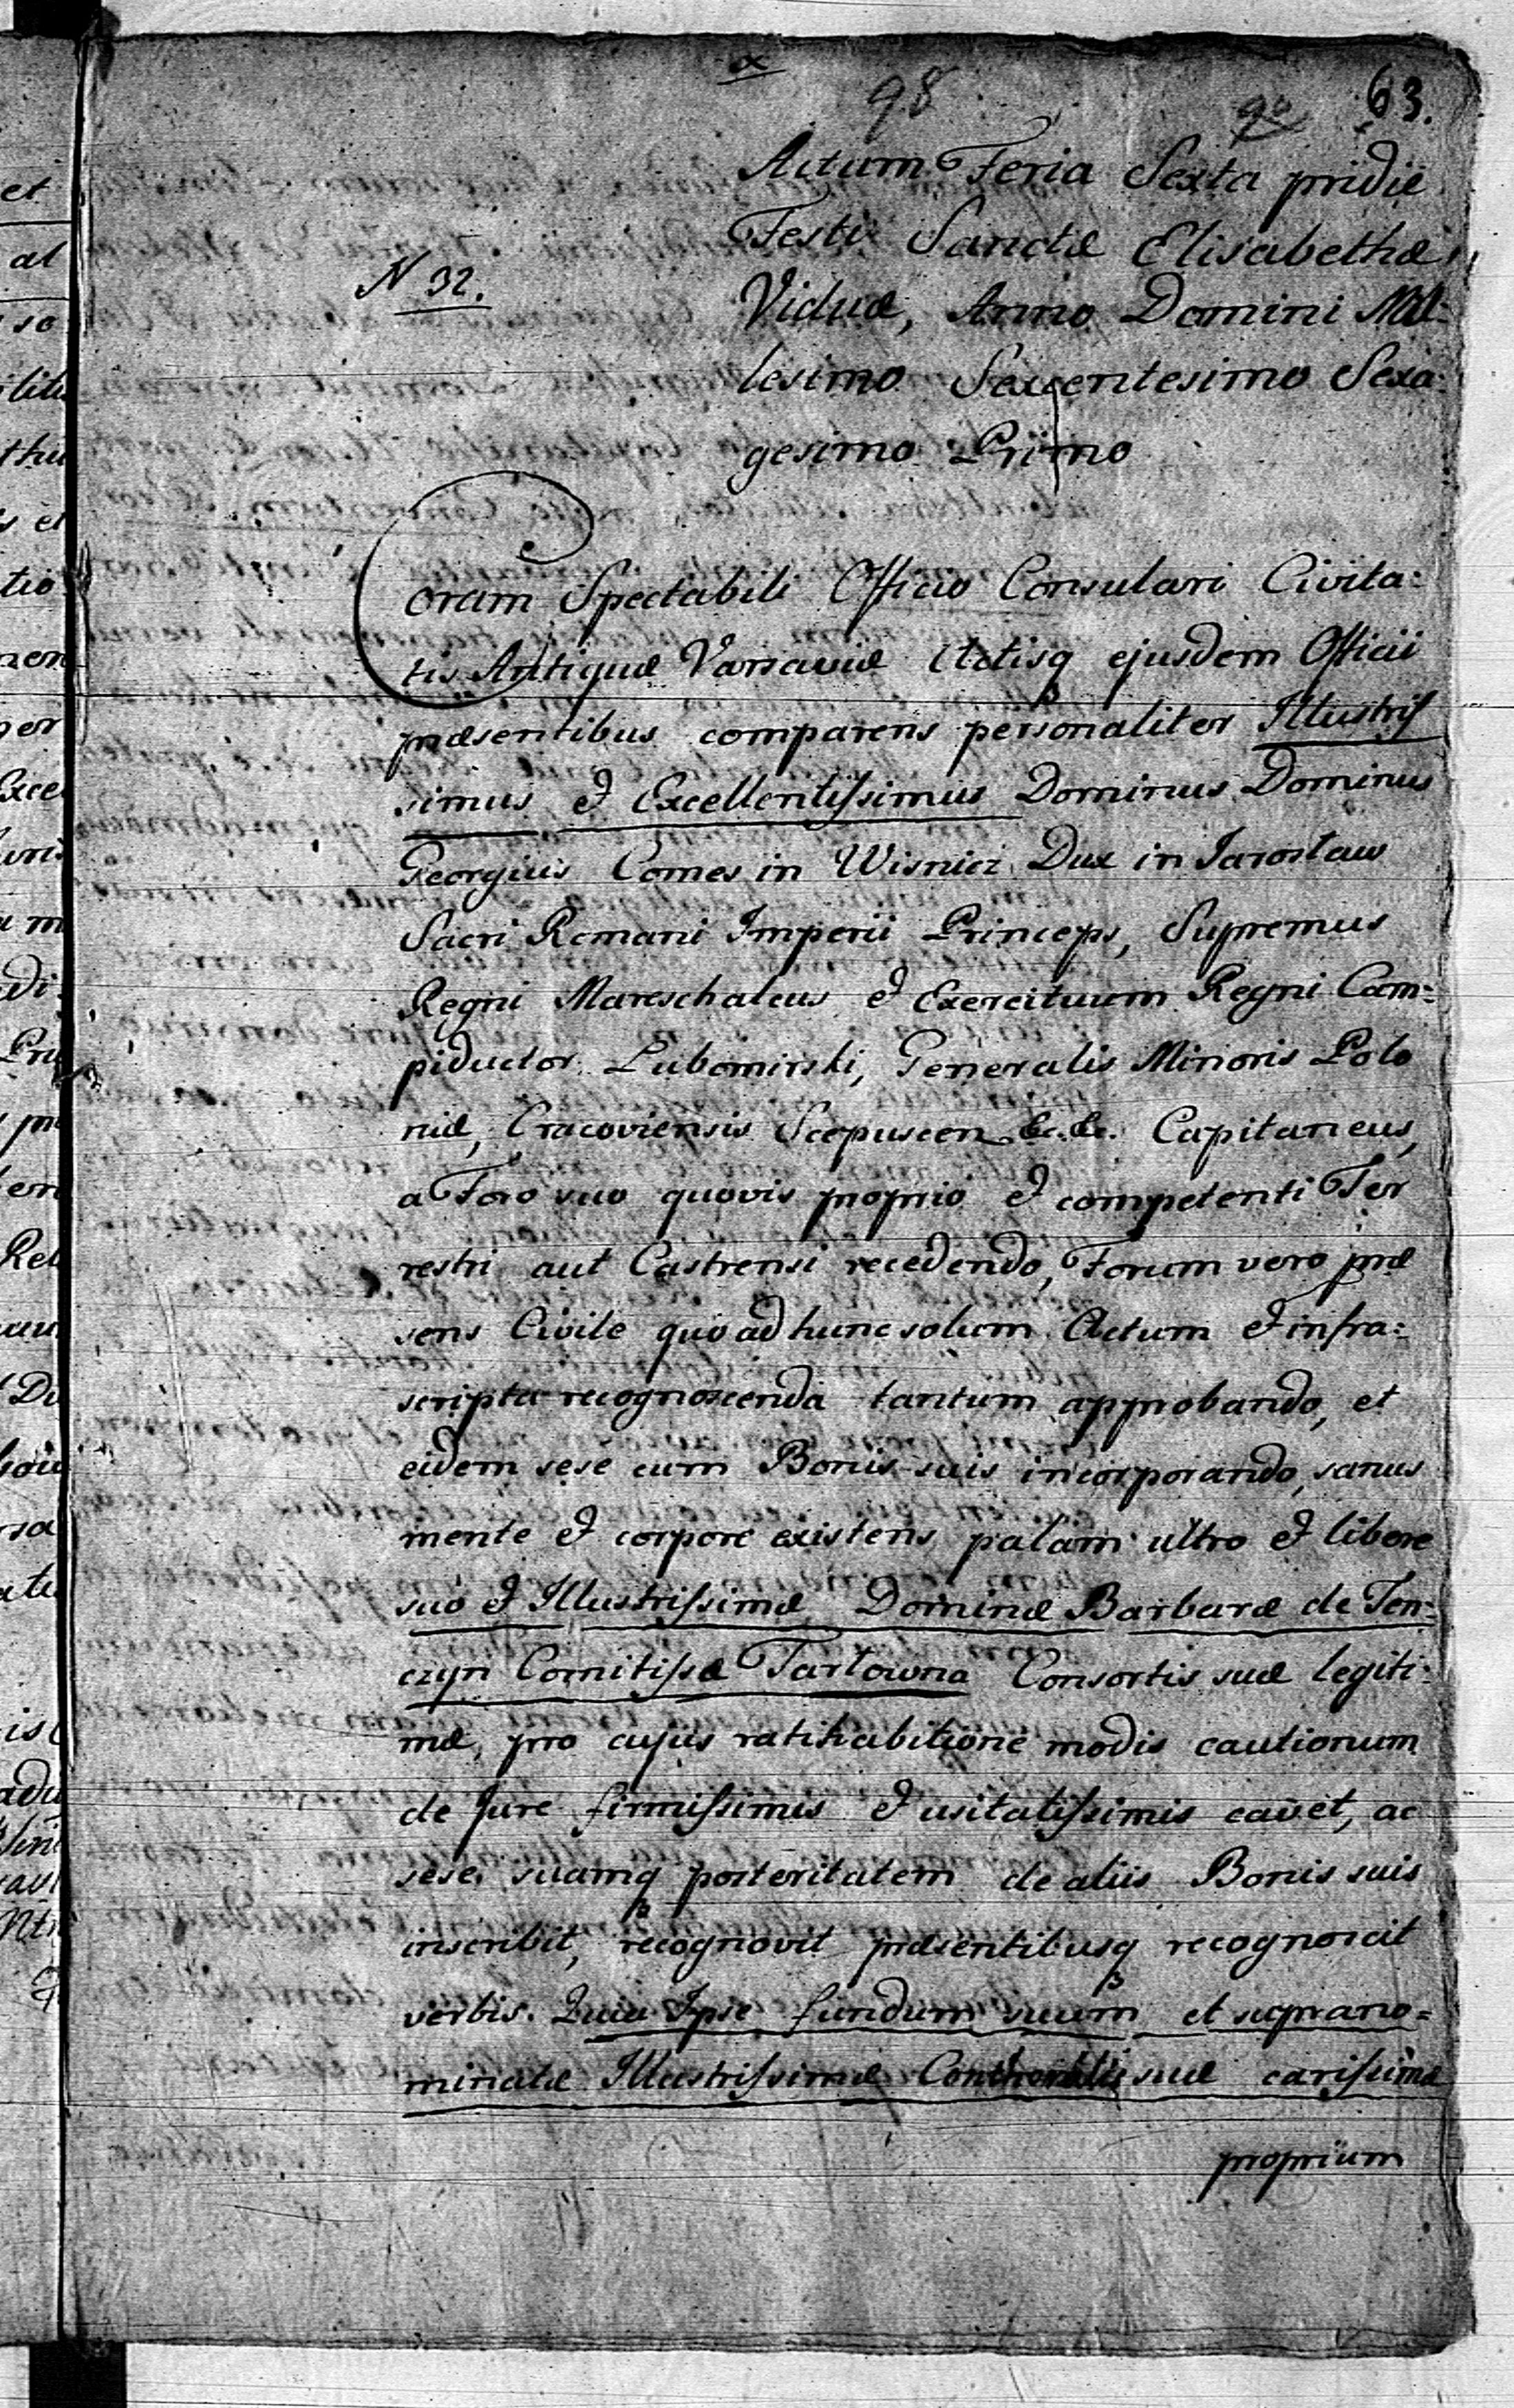 98
63.
Actum Feria Sexta pridie
Festi Sanctæ Elisabethæ
N 32.
Viduæ, Anno Domini Mil-
lesimo Sexcentesimo Sexa:
gesimo Primo
Coram Spectabili Officio Consulari Civita:
tis Antiquæ Varsaviæ Actisq ejusdem Officii
præsentibus comparens personaliter Illustris
simus et Excellentissimus Dominus Dominus
Georgius Comes in Wisnicz Dux in Jarosław
Sacri Romani Imperii Princeps, Supremus
Regni Mareschalcus et Exercituum Regni Cam:
piductor Lubomirski, Generalis Minoris Polo
niæ, Cracoviensis Scepuscen &c. &c. Capitaneus,
a Foro suo quovis proprio et competenti Ter
restri aut Castrensi recedendo, Forum vero præ
sens Civile quo ad hunc solum Actum et infra:
scripta recognoscenda tantum approbando, et
eidem sese cum Bonis suis incorporando, sanus
mente et corpore existens palam ultro et libere
suo et Illustrissimæ Dominæ Barbaræ de Ten:
czyn Comitissæ Tarłowna Consortis suæ legiti:
mæ, pro cujus ratihabitione modis cautionum
de Jure firmissimis et usitatissimis cavet, ac
sese suamq posteritatem de aliis Bonis suis
inscribit, recognovit præsentibusq recognoscit
verbis. Quia Ipse fundum suum et suprano=
minatæ Illustrissimæ suæ carissimæ
proprium